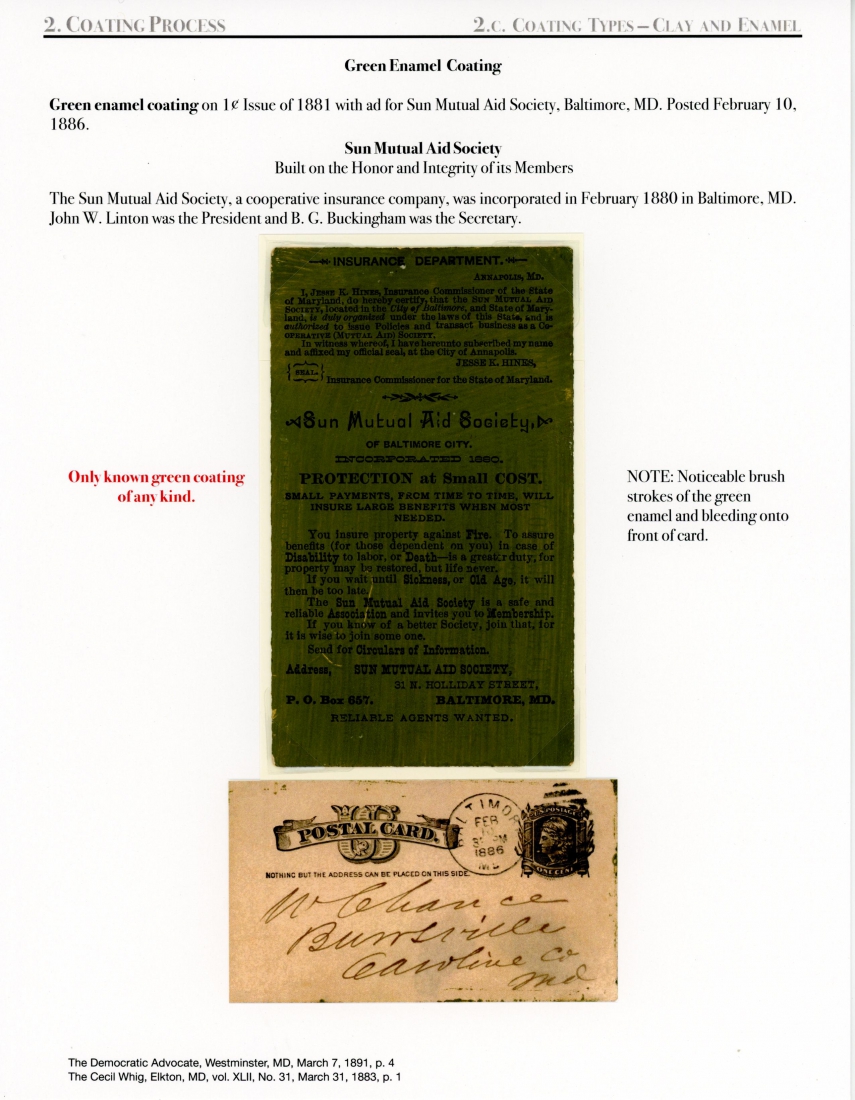 2. COATING PROCESS 2.C. COATING TYPES – CLAY AND ENAMEL
Green Enamel Coating
Green enamel coating on 1¢ Issue of 1881 with ad for Sun Mutual Aid Society, Baltimore, MD. Posted February 10,
1886.
Sun Mutual Aid Society
Built on the Honor and Integrity of its Members
The Sun Mutual Aid Society, a cooperative insurance company, was incorporated in February 1880 in Baltimore, MD.
John W. Linton was the President and B. G. Buckingham was the Secretary.
INSURANCE DEPARTMENT.
ANNAPOLIS, MD.
I, JESSE K. HINES, Insurance Commissioner of the State
of Maryland, do hereby certify, that the SUN MUTUAL AID
SOCIETY, located in the City of Baltimore, and State of Mary-
land, is duly organized under the laws of this State, and is
authorized to issue Policies and transact business as a CO-
OPERATIVE (MUTUAL AID) SOCIETY.
In witness whereof, I have hereunto subscribed my name
and affixed my official seal, at the City of Annapolis.
JESSE K. HINES,
SEAL.
Insurance Commissioner for the State of Maryland.
Sun Mutual Aid Society,
OF BALTIMORE CITY.
INCORPORATED 1880.
PROTECTION at Small COST.
SMALL PAYMENTS, FROM TIME TO TIME, WILL
INSURE LARGE BENEFITS WHEN MOST
NEEDED.
You insure property against Fire. To assure
benefits (for those dependent on you) in case of
Disability to labor, or Death—is a greater duty, for
property may be restored, but life never.
If you wait until Sickness, or Old Age, it will
then be too late.
The Sun Mutual Aid Society is a safe and
reliable Association and invites you to Membership.
If you know of a better Society, join that, for
it is wise to join some one.
Send for Circulars of Information.
Address, SUN MUTUAL AID SOCIETY,
31 N. HOLLIDAY STREET,
P. O. Box 657. BALTIMORE, MD.
RELIABLE AGENTS WANTED.
Only known green coating
of any kind.
NOTE: Noticeable brush
strokes of the green
enamel and bleeding onto
front of card.
POSTAL CARD.
US
NOTHING BUT THE ADDRESS CAN BE PLACED ON THIS SIDE.
BALTIMORE
FEB
10
1886
MD
U.S. POSTAGE
ONE CENT
W Chance
Burrsville
Caroline Co
Md
The Democratic Advocate, Westminster, MD, March 7, 1891, p. 4
The Cecil Whig, Elkton, MD, vol. XLII, No. 31, March 31, 1883, p. 1